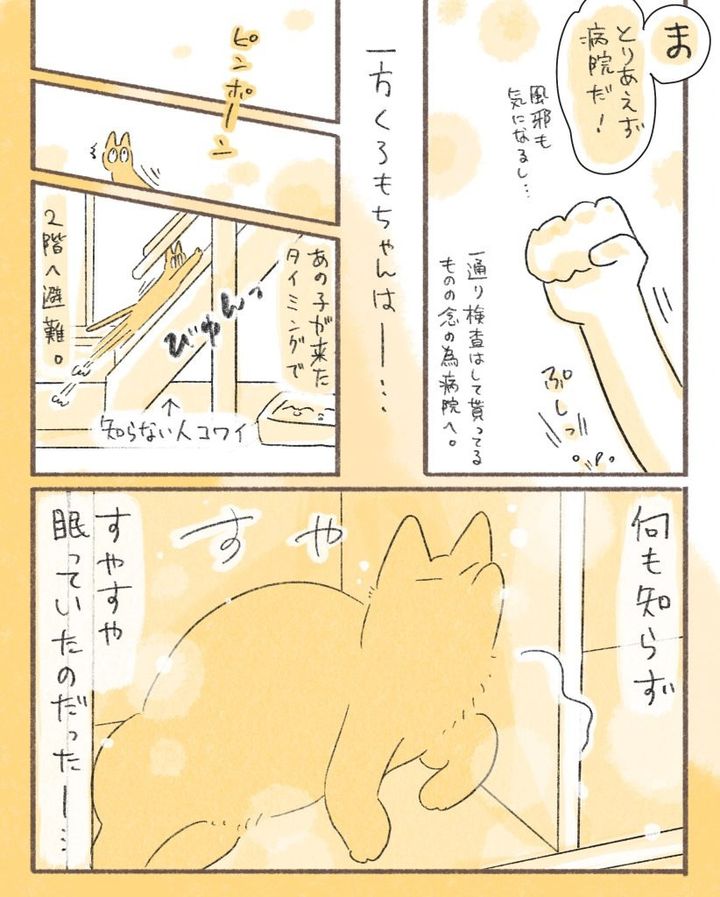 ま
とりあえず
病院だ！
風邪も
気になるし…
一通り検査はして貰ってる
ものの念の為病院へ。
ぷしっ
一方くろもちゃんはー…
ピンポーン
あの子が来た
タイミングで
びゅんっ
2階へ避難。
↑
知らない人コワイ
何も知らず
すや
すやすや
眠っていたのだったー…